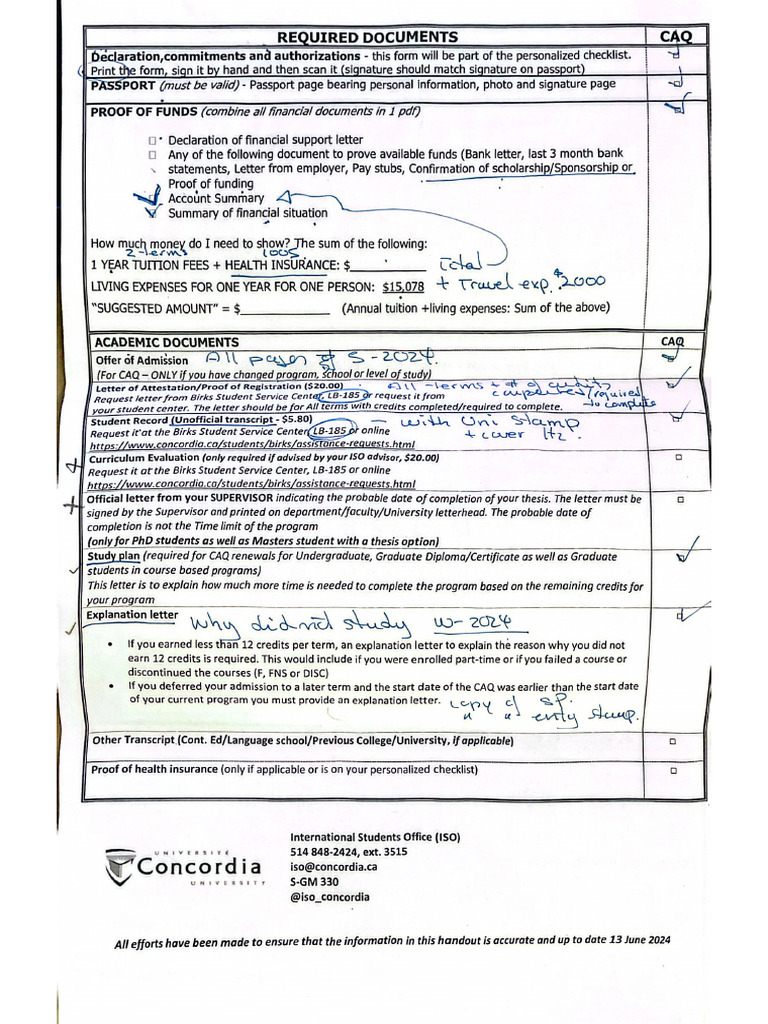 REQUIRED DOCUMENTS CAQ
Declaration,commitments and authorizations - this form will be part of the personalized checklist.
Print the form, sign it by hand and then scan it (signature should match signature on passport)
PASSPORT (must be valid) - Passport page bearing personal information, photo and signature page
PROOF OF FUNDS (combine all financial documents in 1 pdf)
Declaration of financial support letter
Any of the following document to prove available funds (Bank letter, last 3 month bank
statements, Letter from employer, Pay stubs, Confirmation of scholarship/Sponsorship or
Proof of funding
Account Summary
Summary of financial situation
How much money do I need to show? The sum of the following:
2-terms 1005
1 YEAR TUITION FEES + HEALTH INSURANCE: $__________ Total
LIVING EXPENSES FOR ONE YEAR FOR ONE PERSON: $15,078 + Travel exp. $2000
"SUGGESTED AMOUNT" = $____________ (Annual tuition +living expenses: Sum of the above)
ACADEMIC DOCUMENTS CAQ
Offer of Admission All pages of S-2024.
(For CAQ – ONLY if you have changed program, school or level of study)
Letter of Attestation/Proof of Registration ($20.00) All-terms + # of credits
Request letter from Birks Student Service Center, LB-185 or request it from completed/required
your student center. The letter should be for All terms with credits completed/required to complete. to complete
Student Record (Unofficial transcript - $5.80) - with Uni Stamp
Request it at the Birks Student Service Center, LB-185 or online + cover ltr.
https://www.concordia.ca/students/birks/assistance-requests.html
Curriculum Evaluation (only required if advised by your ISO advisor, $20.00)
Request it at the Birks Student Service Center, LB-185 or online
https://www.concordia.ca/students/birks/assistance-requests.html
Official letter from your SUPERVISOR indicating the probable date of completion of your thesis. The letter must be
signed by the Supervisor and printed on department/faculty/University letterhead. The probable date of
completion is not the Time limit of the program
(only for PhD students as well as Masters student with a thesis option)
Study plan (required for CAQ renewals for Undergraduate, Graduate Diploma/Certificate as well as Graduate
students in course based programs)
This letter is to explain how much more time is needed to complete the program based on the remaining credits for
your program
Explanation letter Why did not study W-2024
• If you earned less than 12 credits per term, an explanation letter to explain the reason why you did not
earn 12 credits is required. This would include if you were enrolled part-time or if you failed a course or
discontinued the courses (F, FNS or DISC)
• If you deferred your admission to a later term and the start date of the CAQ was earlier than the start date
of your current program you must provide an explanation letter. copy of SP.
" " entry stamp.
Other Transcript (Cont. Ed/Language school/Previous College/University, if applicable)
Proof of health insurance (only if applicable or is on your personalized checklist)
UNIVERSITÉ
Concordia
UNIVERSITY
International Students Office (ISO)
514 848-2424, ext. 3515
iso@concordia.ca
S-GM 330
@iso_concordia
All efforts have been made to ensure that the information in this handout is accurate and up to date 13 June 2024